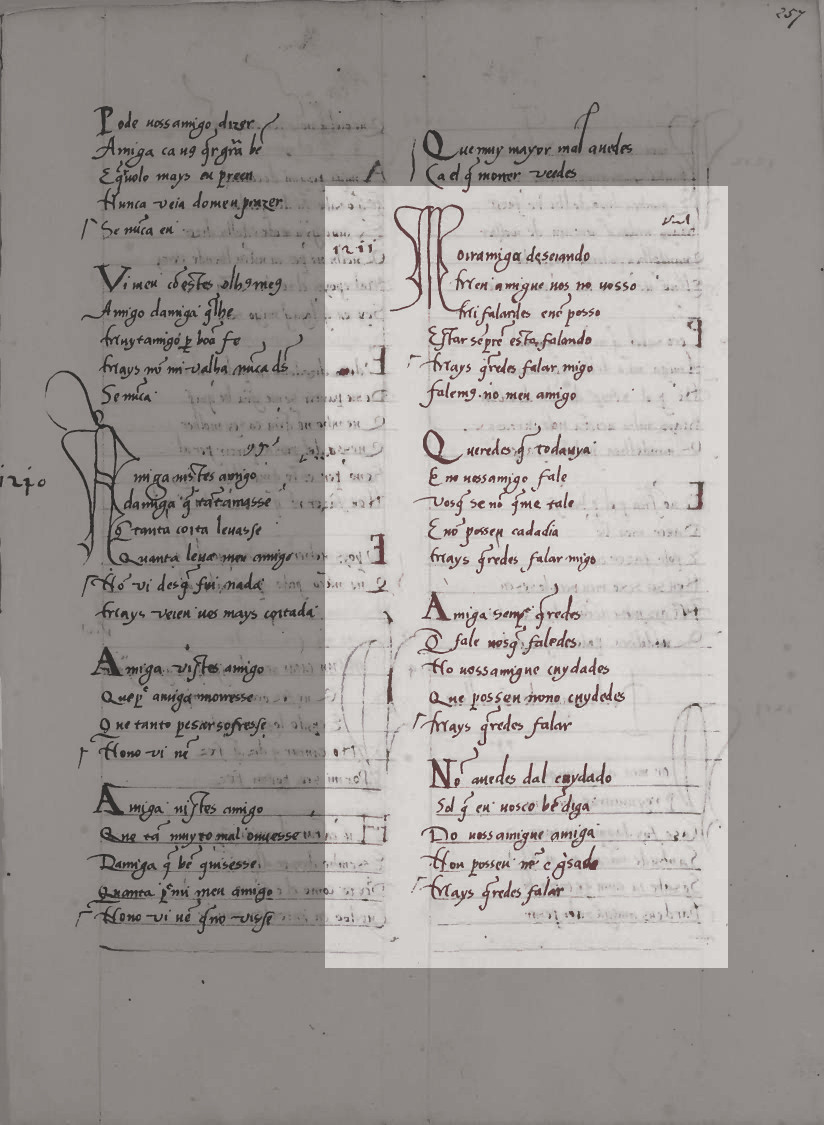 257
Pode uossamigo dizer
Amiga ca uꝯ q̃r grã bẽ
E q̃uolo mays en preen
Nunca veia domen prazer
Se nũca en
Vi meu cõestes olhꝯ meꝯ
Amigo damiga q̃lhe
Muytamigo ꝑ boã fe
Mays nõ mi valha nũca ds̃
Se nũca
1240
Amiga uistes amigo
damiga q̃ tãtamasse
Q̃ tanta coita leuasse
Quanta leua meu amigo
Nõ vi desq̃ fui nada
Mays veien uos mays coitada
Amiga vistes amigo
Que ꝑ amiga moiresse
Que tanto pesar sofresse
Nono vi nẽ
Amiga uistes amigo
Que tã muyto mal ouuesse
Damiga q̃ bẽ quisesse
Quanta ꝑ mi meu amigo
Nono vi nẽ q̃no visse
Que muy mayor mal auedes
Ca el q̃ moirer veedes
1241
Moiramiga deseiando
Meu amigue uos no uosso
Mi falardes enõ posso
Estar sepre esta falando
Mays q̃redes falar migo
falemꝯ no meu amigo
Queredes q̃ todauya
E no uossamigo fale
Vosq̃ se nõ q̃me cale
E nõ possen cadadia
Mays q̃redes falar migo
Amiga semp̃ q̃redes
Q̃ fale uosq̃ faledes
No uossamigue cuydades
Que possen nono cuydedes
Mays q̃redes falar
Nõ auedes dal cuydado
Sol q̃ eu uosco bẽ diga
Do uossamigue amiga
Non possen nẽ e g̃sado
Mays q̃redes falar